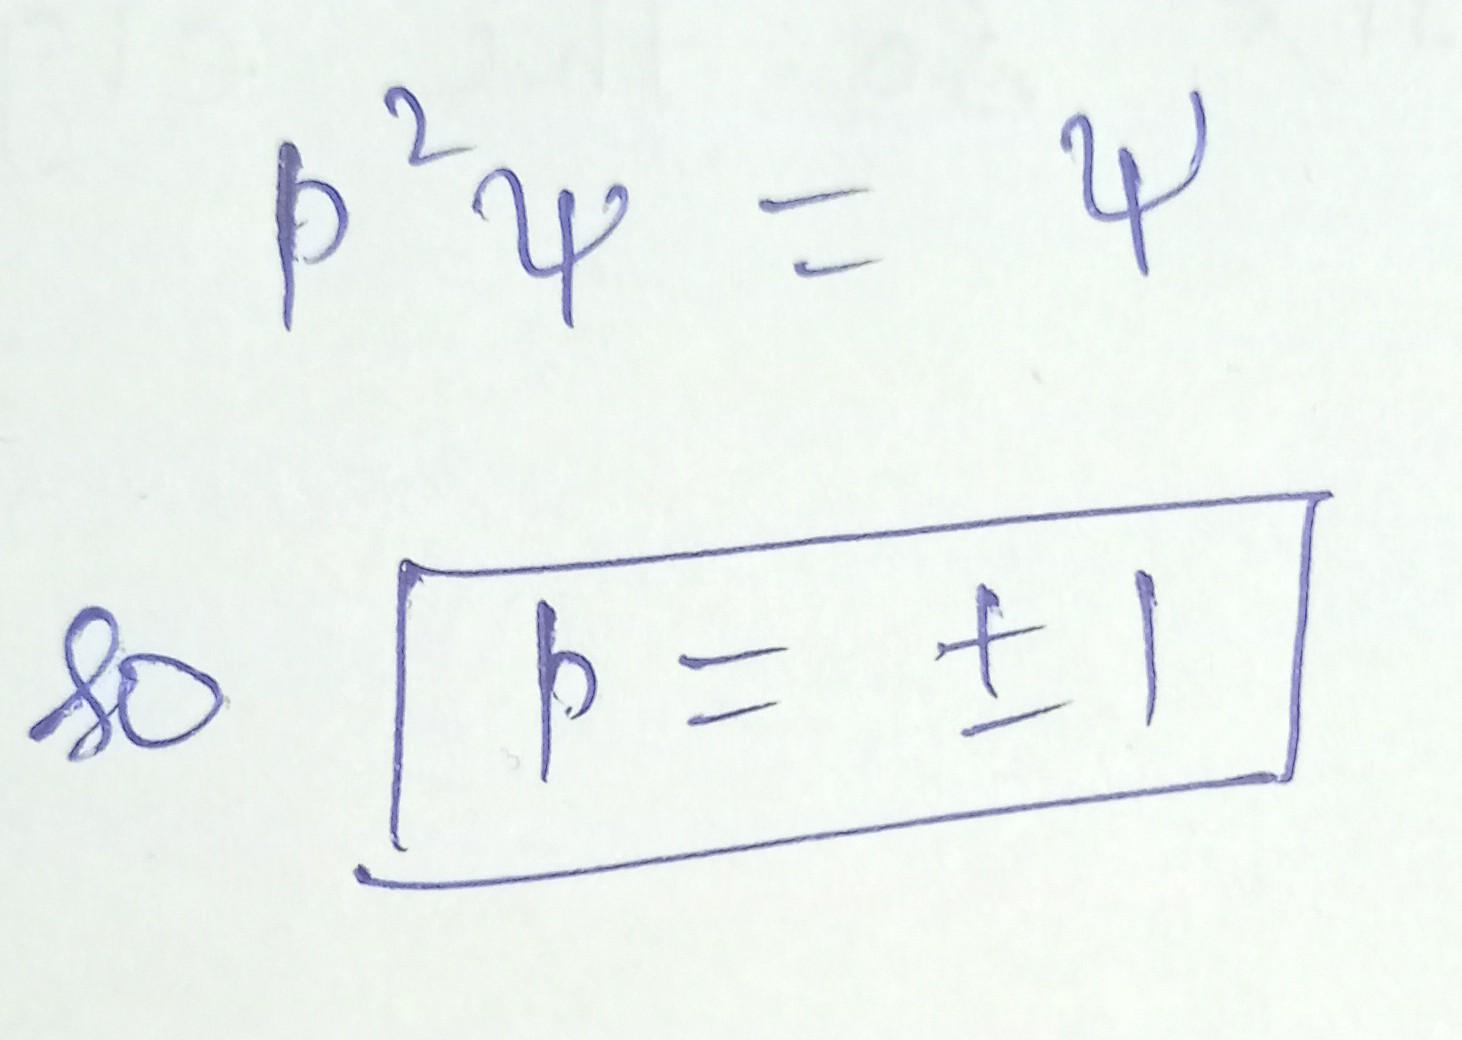 p²ψ = ψ
so p = ± 1